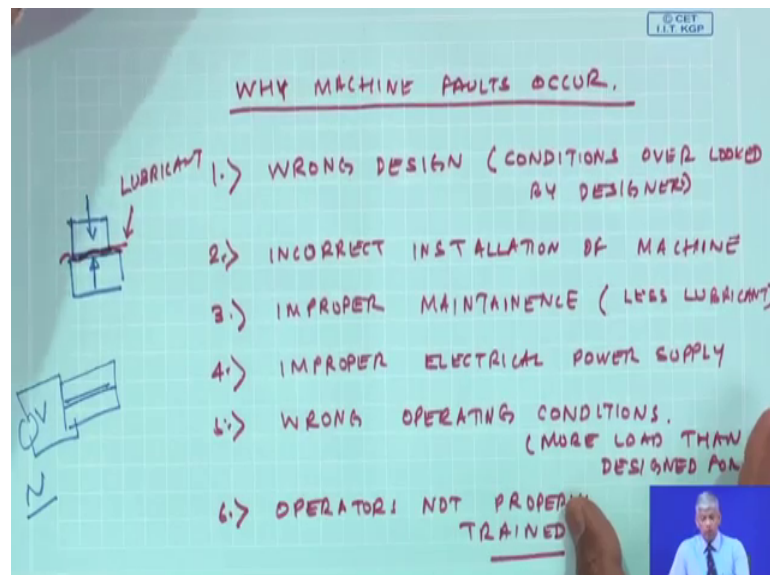 © CET
I.I.T. KGP
WHY MACHINE FAULTS OCCUR.
LUBRICANT
1.) WRONG DESIGN (CONDITIONS OVER LOOKED
BY DESIGNER)
2.) INCORRECT INSTALLATION OF MACHINE
3.) IMPROPER MAINTAINENCE (LESS LUBRICANT)
4.) IMPROPER ELECTRICAL POWER SUPPLY
V
5.) WRONG OPERATING CONDITIONS.
(MORE LOAD THAN
DESIGNED FOR
N
6.) OPERATORS NOT PROPERLY
TRAINED